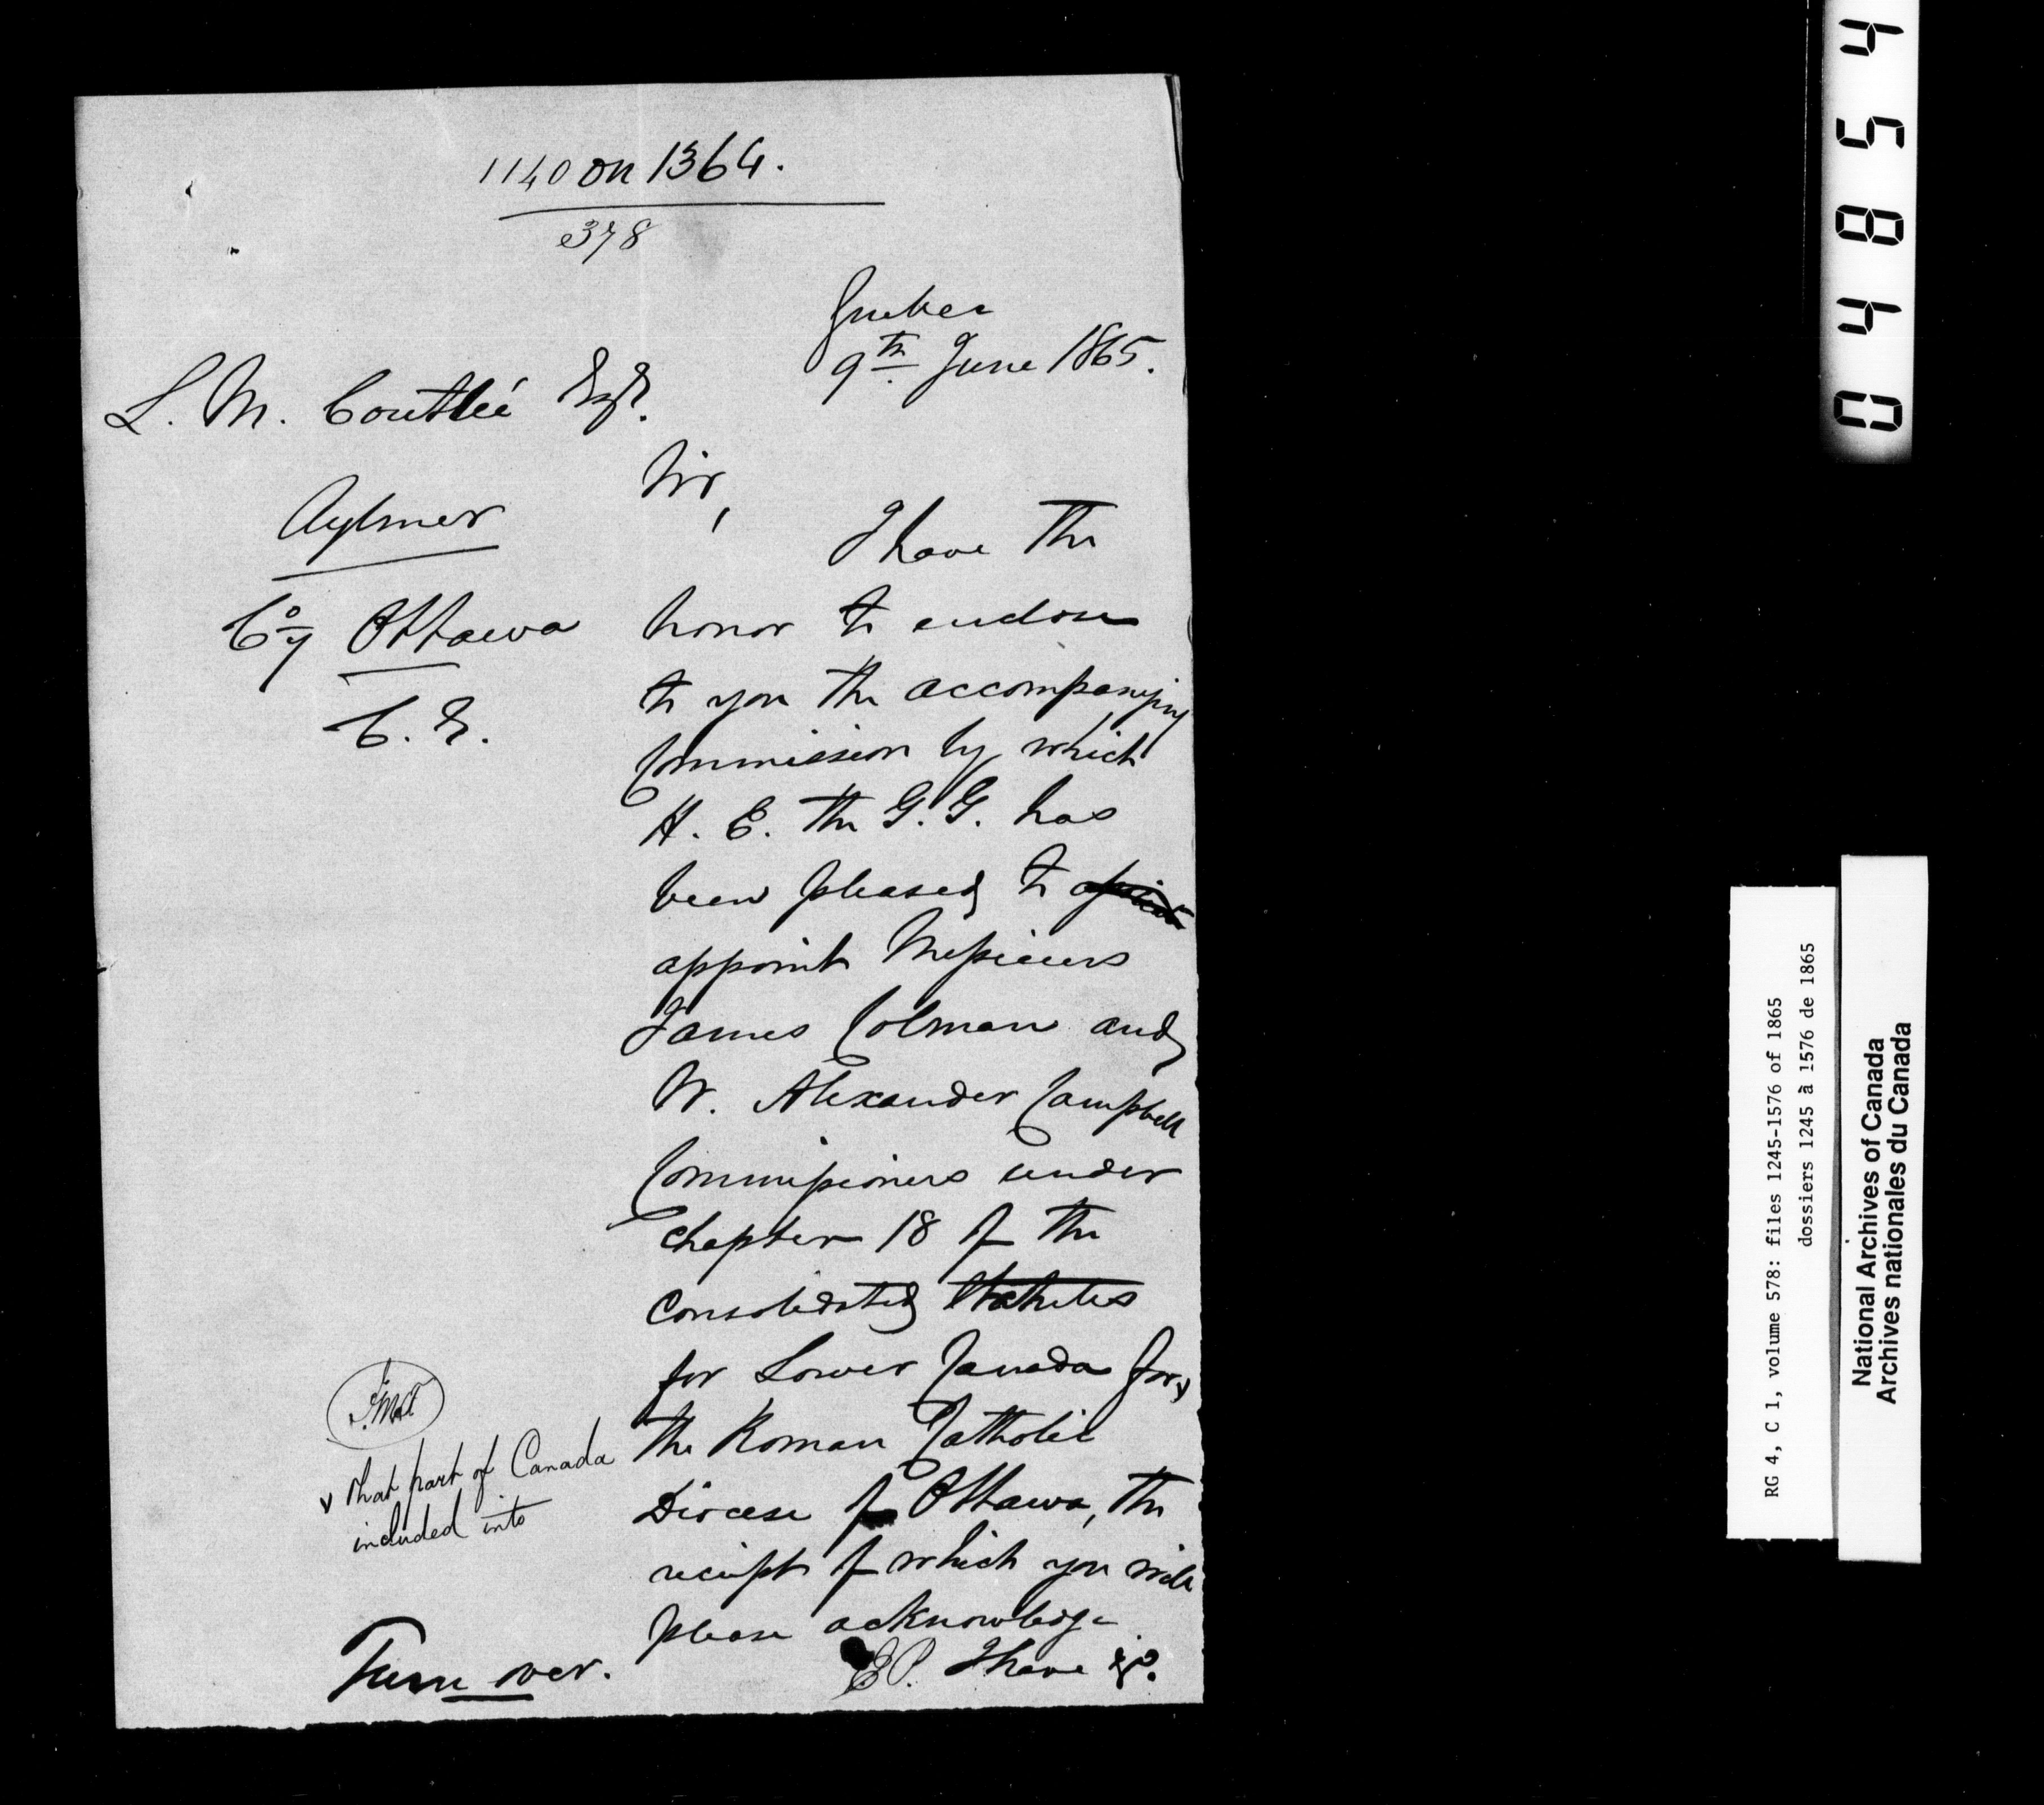 1140 on 1364.
378
Quebec
9th June 1865.
L. M. Coutlée Esqr.
Aylmer
Coy Ottawa
C. E.
Sir,
I have the
honor to enclose
to you the accompanying
Commission by which
H. E. the G. G. has
been pleased to
appoint Messieurs
James Colman and
W. Alexander Campbell
Commissioners under
Chapter 18 of the
Consolidated Statutes
for Lower Canada for
the Roman Catholic
Diocese of Ottawa, the
receipt of which you will
please acknowledge
E.P. I have &c.
that part of Canada
included into
Turn over.
04854
RG 4, C 1, volume 578: files 1245-1576 of 1865
dossiers 1245 à 1576 de 1865
National Archives of Canada
Archives nationales du Canada